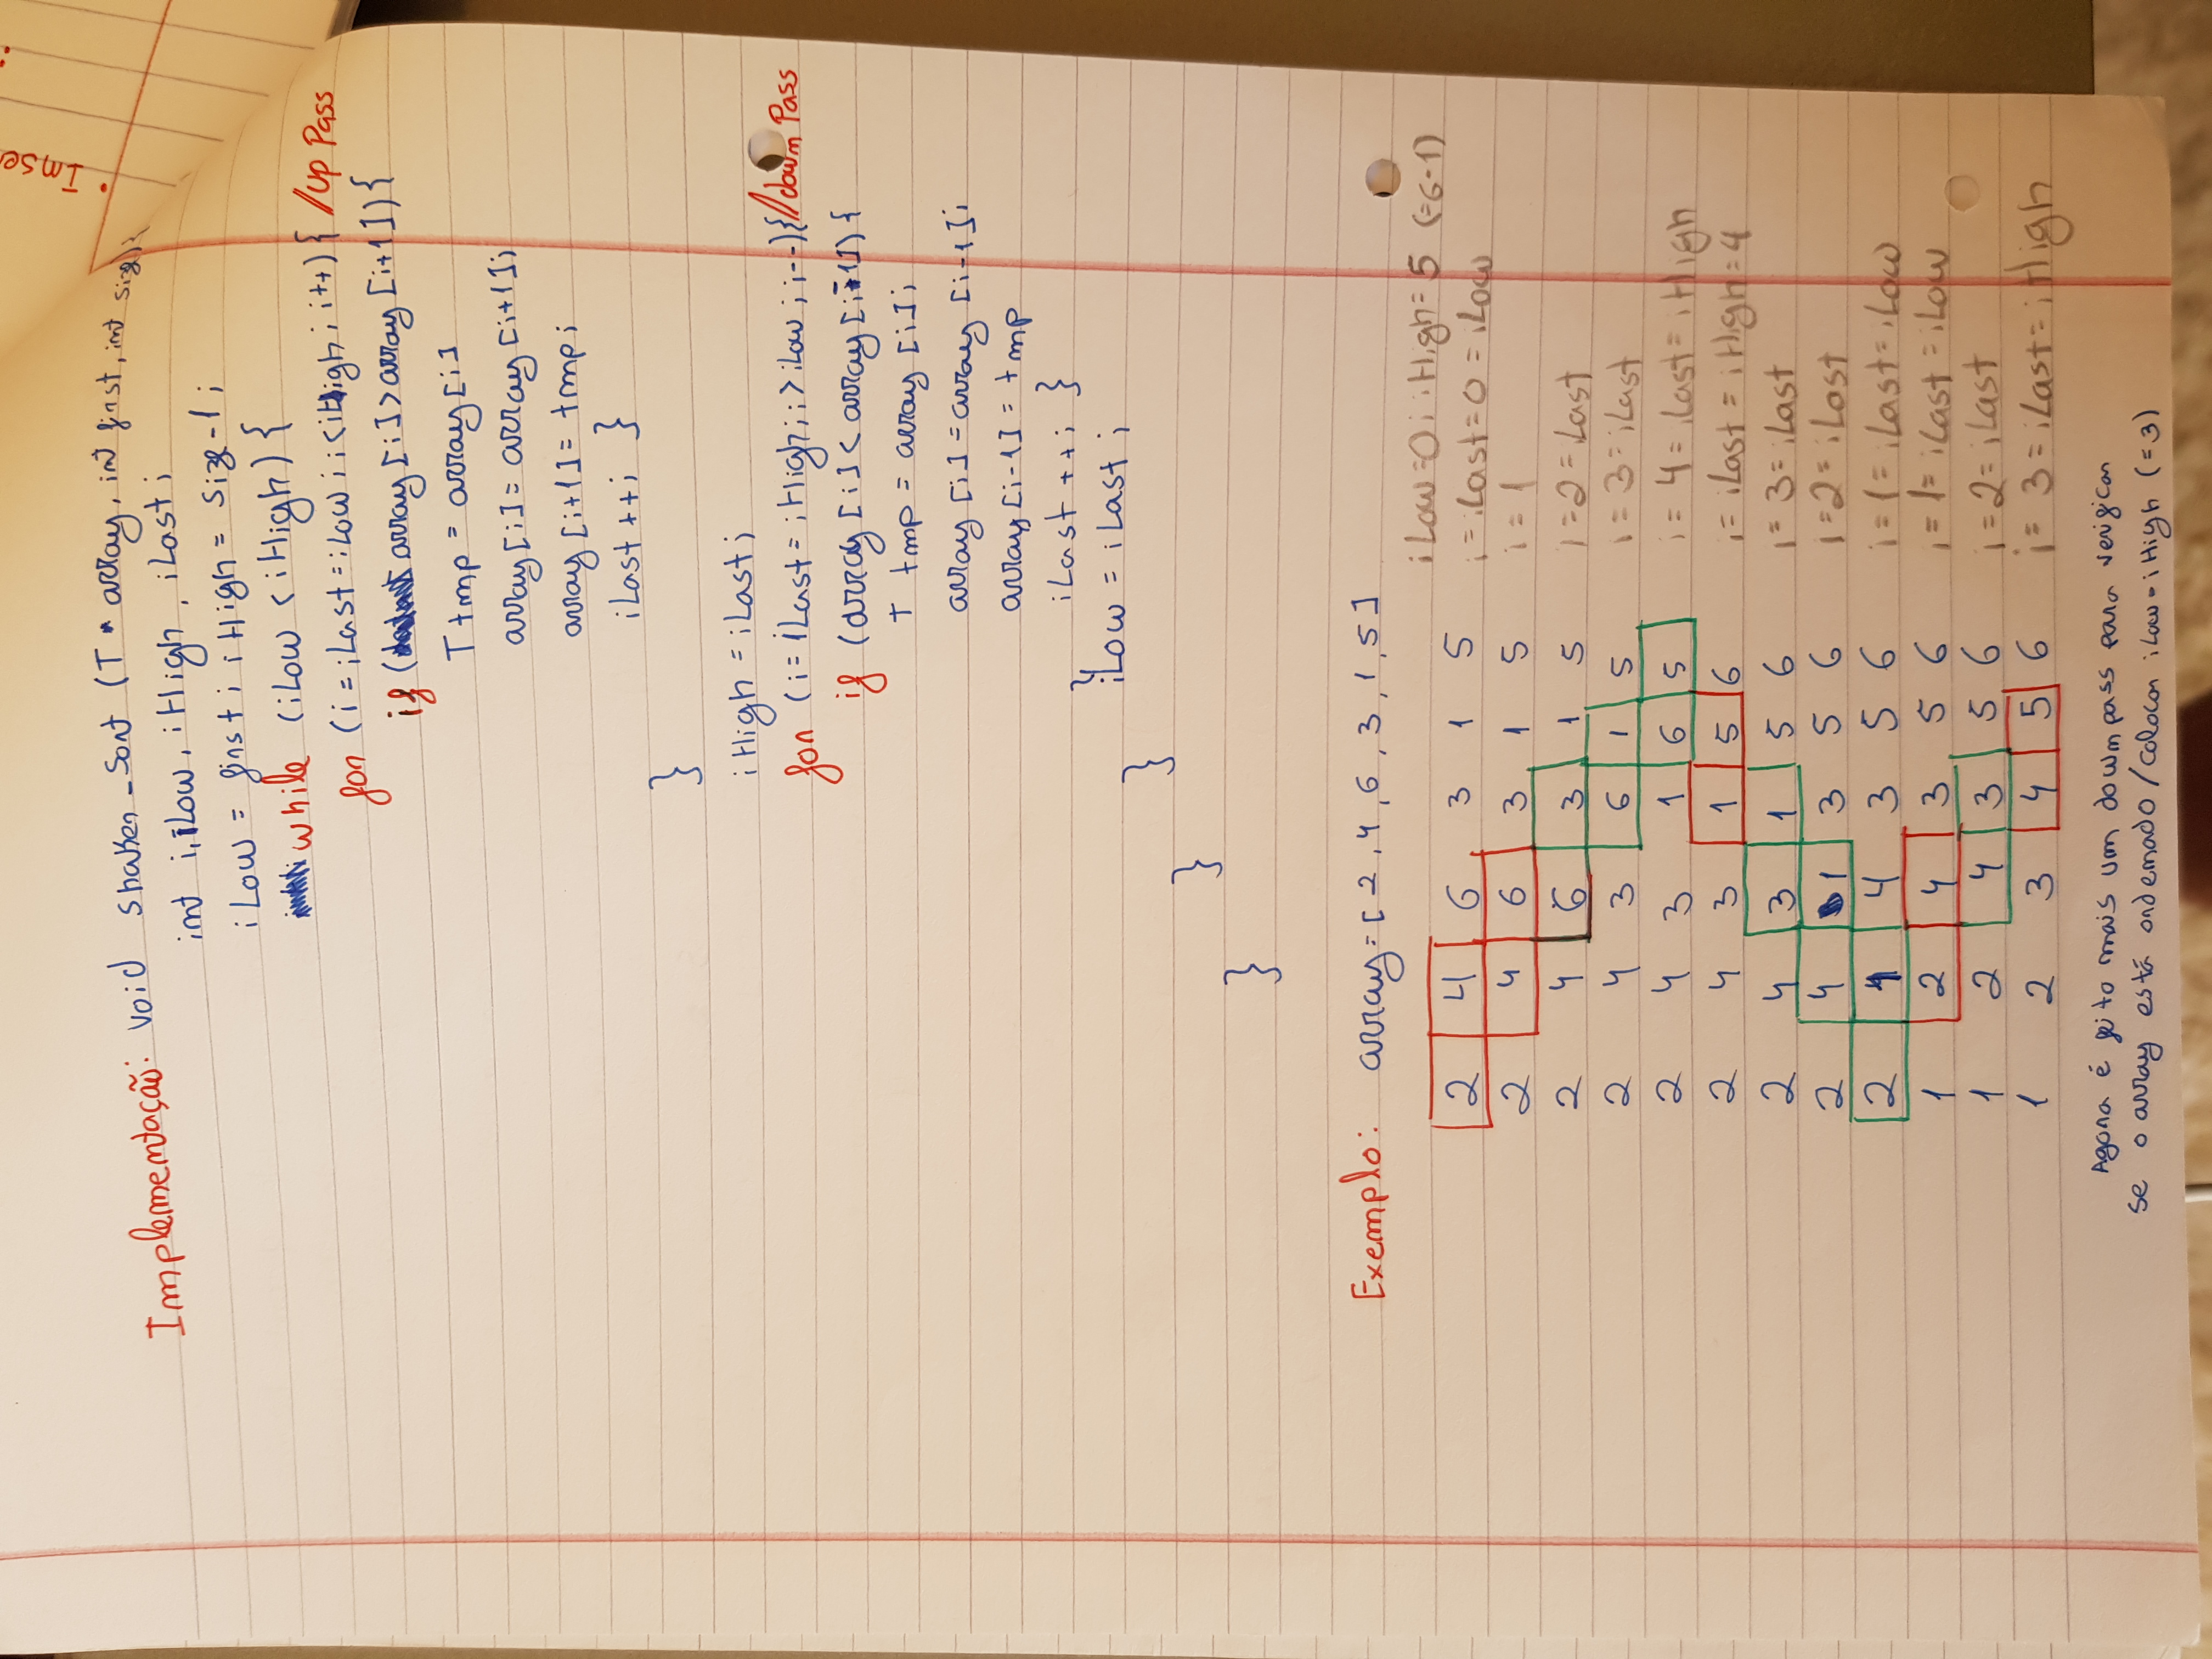 • Inse
Implementação: void shaker_sort (T* array, int first, int size){
int i, iLow, iHigh, iLast;
iLow = first; iHigh = size-1;
while (iLow < iHigh) {
for (i = iLast = iLow; i < iHigh; i++) { //Up Pass
if (array [i] > array [i+1]) {
T tmp = array [i]
array [i] = array [i+1];
array [i+1] = tmp;
iLast ++; }
}
iHigh = iLast;
for (i = iLast = iHigh; i > iLow; i--){ //down Pass
if (array [i] < array [i-1]) {
T tmp = array [i];
array [i] = array [i-1];
array [i-1] = tmp
iLast ++; }
}
iLow = iLast;
}
}
}
Exemplo: array = [2, 4, 6, 3, 1, 5]
iLow=0; iHigh = 5 (=6-1)
2 4 6 3 1 5 i = iLast = 0 = iLow
2 4 6 3 1 5 i = 1
2 4 6 3 1 5 i = 2 = iLast
2 4 3 6 1 5 i = 3 = iLast
2 4 3 1 6 5 i = 4 = iLast = iHigh
2 4 3 1 5 6 i = iLast = iHigh = 4
2 4 3 1 5 6 i = 3 = iLast
2 4 1 3 5 6 i = 2 = iLast
2 1 4 3 5 6 i = 1 = iLast = iLow
1 2 4 3 5 6 i = 1 = iLast = iLow
1 2 4 3 5 6 i = 2 = iLast
1 2 3 4 5 6 i = 3 = iLast = iHigh
Agora é feito mais um down pass para verificar
se o array está ordenado / colocar iLow = iHigh (=3)